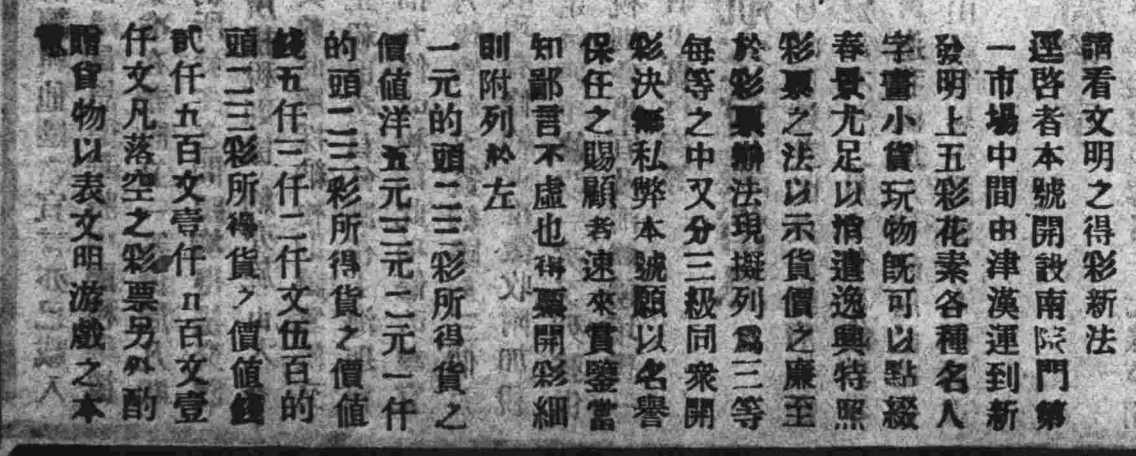 請看文明之得彩新法
逕啓者本號開設南院門第
一市場中間由津漢運到新
發明上五彩花素各種名人
字畫小貨玩物既可以點綴
春景尤足以消遣逸興特照
彩票之法以示貨價之廉至
於彩票辦法現擬列爲三等
每等之中又分三級同衆開
彩決無私弊本號願以名譽
保任之賜顧者速來賞鑒當
知鄙言不虛也得票開彩細
則附列於左
一元的頭二三彩所得貨之
價値洋五元三元二元一仟
的頭二三彩所得貨之價値
錢五仟三仟二仟文伍百的
頭二三彩所得貨之價値錢
貳仟五百文壹仟n百文壹
仟文凡落空之彩票另外酌
贈貨物以表文明游戲之本